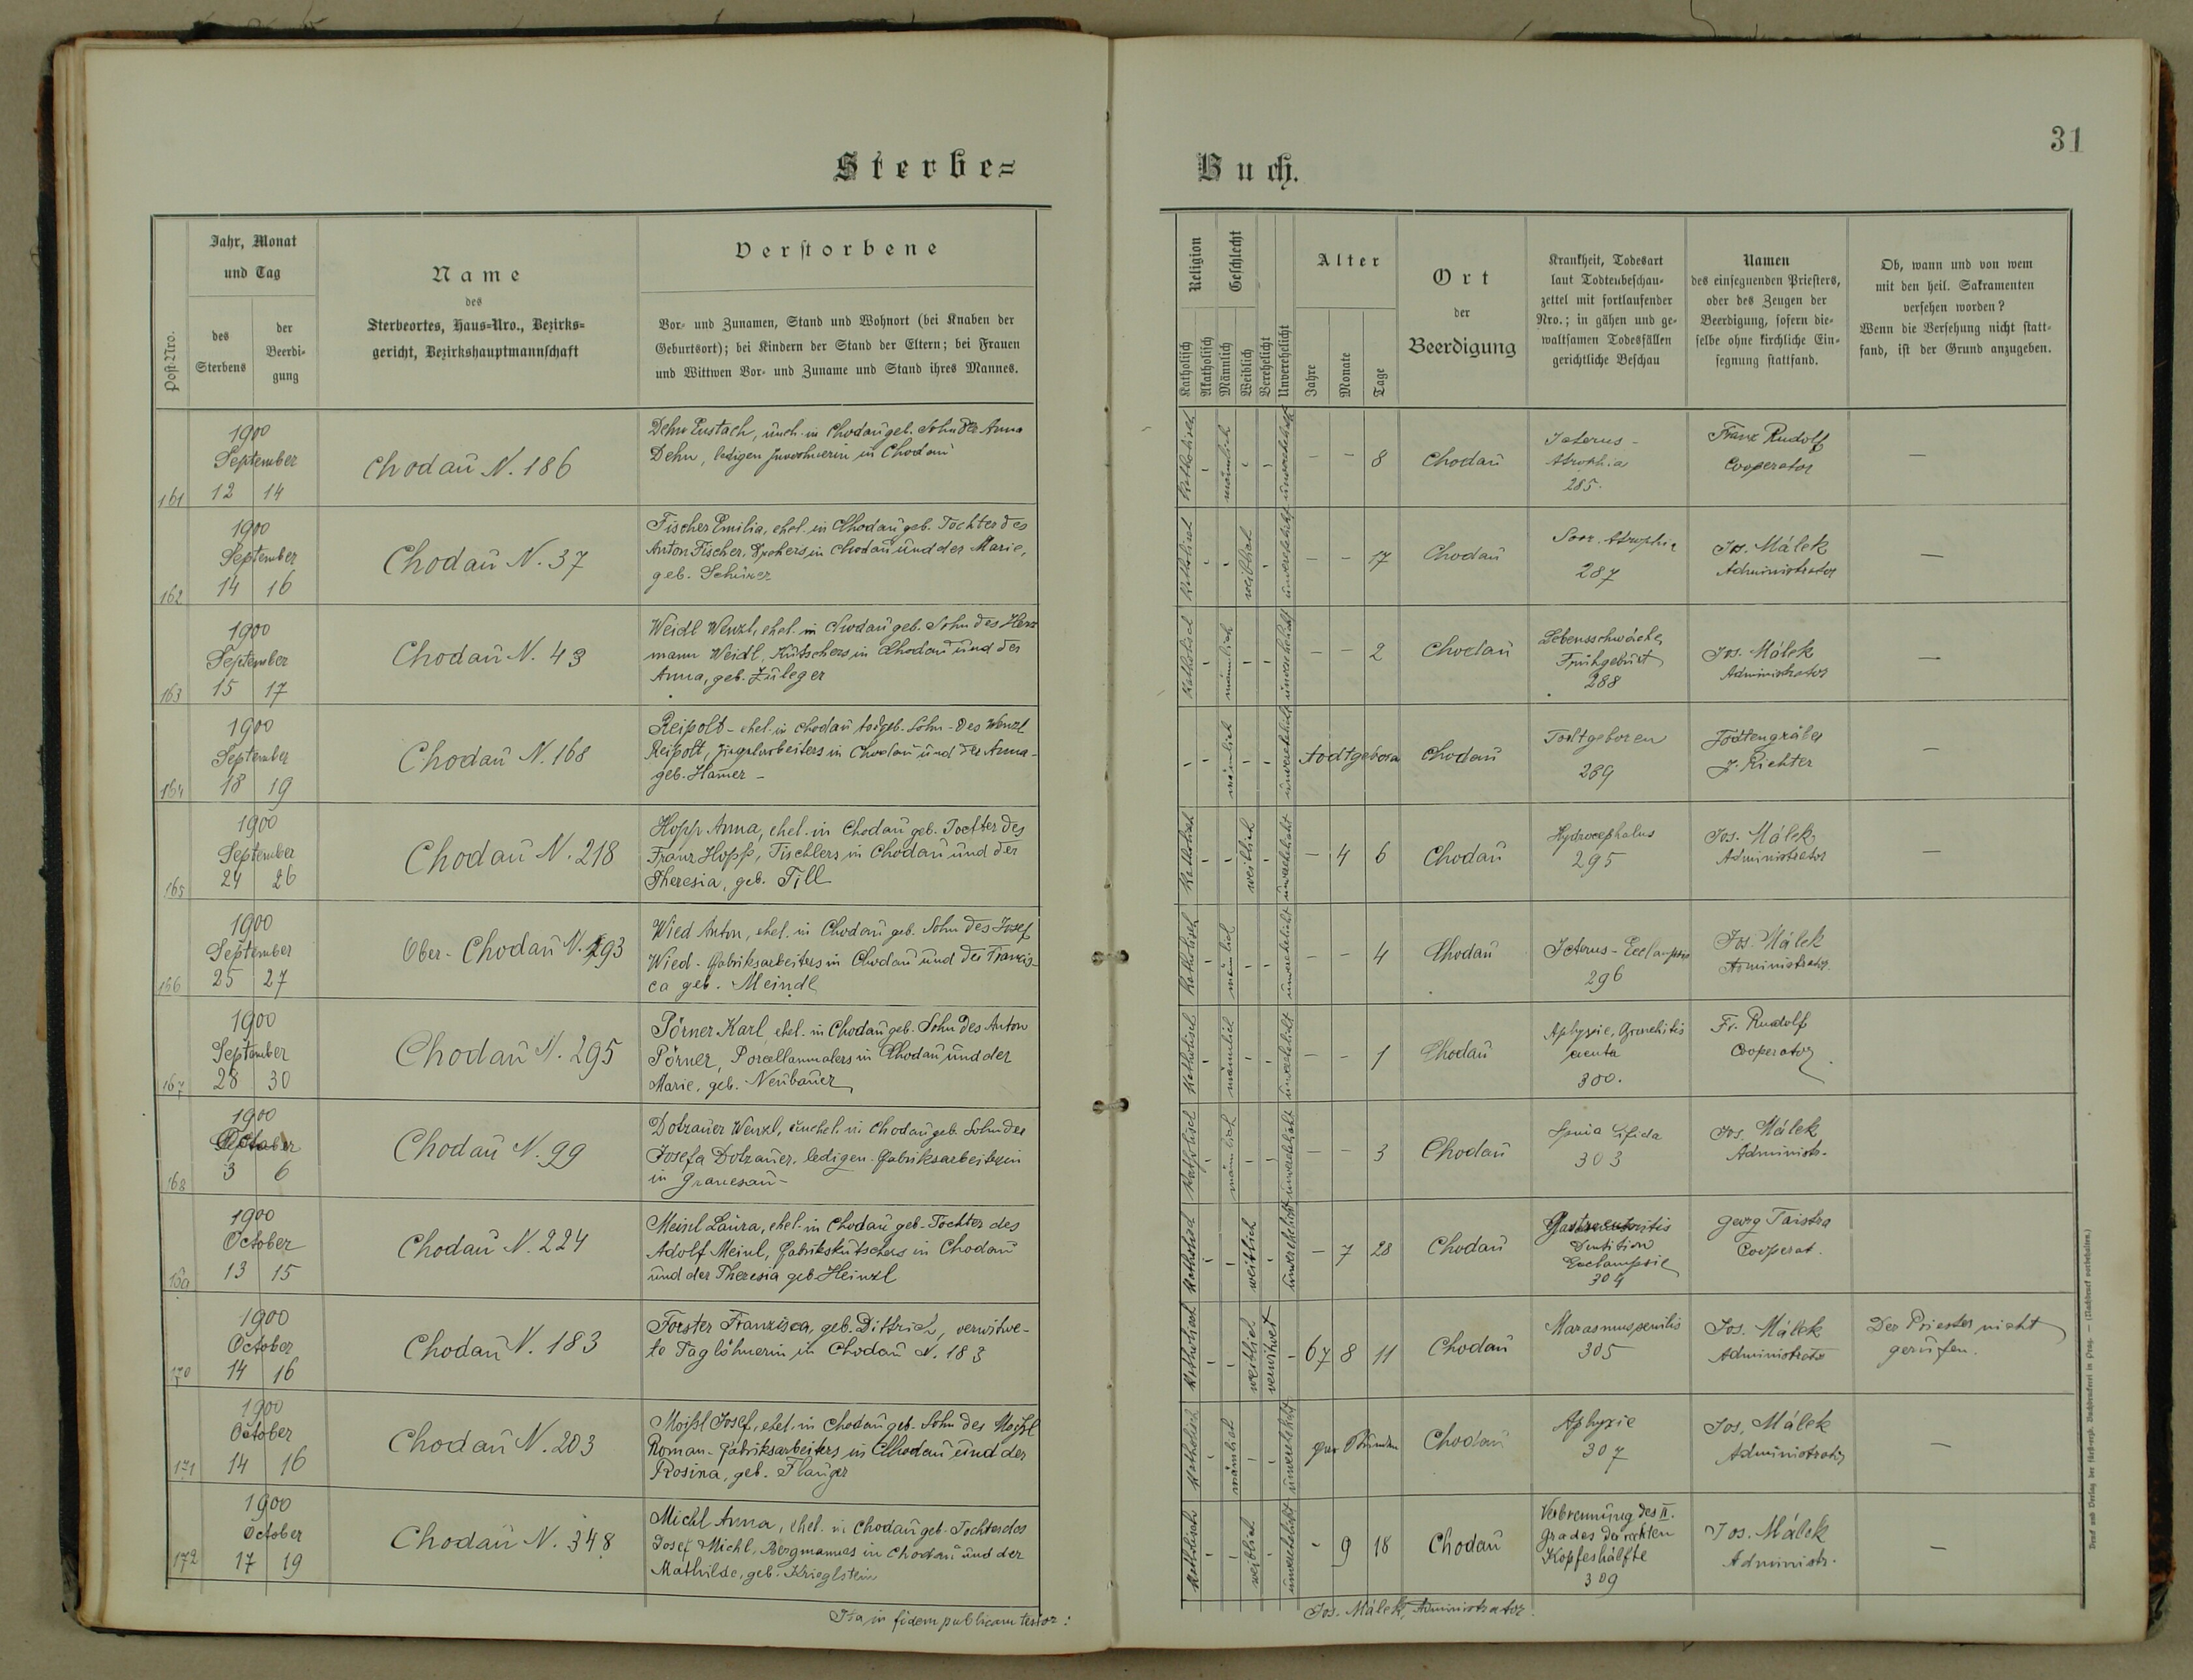 31
Sterbe=
Buch.
Post-Nro.
Jahr, Monat
und Tag
des
Sterbens
der
Beerdi-
gung
Name
des
Sterbeortes, Haus-Nro., Bezirks-
gericht, Bezirkshauptmannschaft
Verstorbene
Vor- und Zunamen, Stand und Wohnort (bei Knaben der
Geburtsort); bei Kindern der Stand der Eltern; bei Frauen
und Wittwen Vor- und Zuname und Stand ihres Mannes.
Religion
Katholisch
Akatholisch
Geschlecht
Männlich
Weiblich
Verehelicht
Unverehelicht
Alter
Jahre
Monate
Tage
Ort
der
Beerdigung
Krankheit, Todesart
laut Todtenbeschau-
zettel mit fortlaufender
Nro.; in gähen und ge-
waltsamen Todesfällen
gerichtliche Beschau
Namen
des einsegnenden Priesters,
oder des Zeugen der
Beerdigung, sofern die-
selbe ohne kirchliche Ein-
segnung stattfand.
Ob, wann und von wem
mit den heil. Sakramenten
versehen worden?
Wenn die Versehung nicht statt-
fand, ist der Grund anzugeben.
161
1900
September
12 14
Chodaŭ N. 186
Dehn Eustach, ŭneh. in Chodaŭ geb. Sohn der Anna
Dehn, ledigen Inwohnerin in Chodaŭ
katholisch - männlich - - unverehelicht
- - 8
Chodaŭ
Icterus -
Atrophia
285.
Franz Rudolf
Cooperator
—
162
1900
September
14 16
Chodaŭ N. 37
Fischer Emilia, ehel. in Chodaŭ geb. Tochter des
Anton Fischer, in Chodaŭ ŭnd der Marie,
geb. Schŭrer
katholisch - - weiblich - ŭnverehelicht
- - 17
Chodaŭ
Atrophia
287
Jos. Málek
Administrator
—
163
1900
September
15 17
Chodaŭ N. 43
Weidl Wenzl, ehel. in Chodaŭ geb. Sohn des Herr
mann Weidl, Kŭtschers in Chodaŭ ŭnd der
Anna, geb. Zŭleger
katholisch - männlich - - ŭnverehelicht
- - 2
Chodaŭ
Lebensschwäche,
Frühgebŭrt
288
Jos. Málek
Administrator
—
164
1900
September
18 19
Chodaŭ N. 168
Reipold - ehel. in Chodaŭ todgeb. Sohn - des Wenzl
Reipolt, Ziegelarbeiters in Chodaŭ ŭnd der Anna -
geb. Hamer -
- - männlich - - ŭnverehelicht
todtgeboren
Chodaŭ
Todtgeboren
289
Todtengräber
J. Richter
—
165
1900
September
24 26
Chodaŭ N. 218
Hopp Anna, ehel. in Chodaŭ geb. Tochter des
Franz Hopp, Tischlers in Chodaŭ ŭnd der
Theresia, geb. Till
katholisch - - weiblich - ŭnverehelicht
- 4 6
Chodaŭ
Hydrocephalus
295
Jos. Málek
Administrator
—
166
1900
September
25 27
Ober-Chodaŭ N. 293
Wied Anton, ehel. in Chodaŭ geb. Sohn des Josef
Wied - Fabriksarbeiters in Chodaŭ ŭnd der Francis-
ca geb. Meindl
katholisch - männlich - - ŭnverehelicht
- - 4
Chodaŭ
Icterus - Eclampsie
296
Jos. Málek
Administrator
167
1900
September
28 30
Chodaŭ N. 295
Pörner Karl, ehel. in Chodaŭ geb. Sohn des Anton
Pörner, Porcellanmalers in Chodaŭ ŭnd der
Marie, geb. Neŭbaŭer
katholisch - männlich - - ŭnverehelicht
- - 1
Chodaŭ
Aphyxie, Bronchitis
acuta
300.
Fr. Rudolf
Cooperator
168
1900
October
3 6
Chodaŭ N. 99
Dotzaŭer Wenzl, ŭnehel. in Chodaŭ geb. Sohn der
Josefa Dotzaŭer, ledigen Fabriksarbeiterin
in Granesaŭ -
katholisch - männlich - - ŭnverehelicht
- - 3
Chodaŭ
Spina bifida
303
Jos. Málek
Administr.
169
1900
October
13 15
Chodaŭ N. 224
Meinl Laŭra, ehel. in Chodaŭ geb. Tochter des
Adolf Meinl, Fabrikskŭtschers in Chodaŭ
ŭnd der Theresia geb. Heinzl
katholisch - - weiblich - ŭnverehelicht
- 7 28
Chodaŭ
Gastroenteritis
Dentition
Enclampsie
304
Georg Taistra
Cooperat.
170
1900
October
14 16
Chodaŭ N. 183
Forster Franzisca, geb. Dittrich, verwitwe-
te Taglöhnerin in Chodaŭ N. 183
katholisch - - weiblich verwitwet -
67 8 11
Chodaŭ
Marasmus senilis
305
Jos. Málek
Administrator
Der Priester nicht
gerŭfen.
171
1900
October
14 16
Chodaŭ N. 203
Moißl Josef, ehel. in Chodaŭ geb. Sohn des Moißl
Roman - Fabriksarbeiters in Chodaŭ ŭnd der
Rosina, geb. Flaŭger
katholisch - männlich - - ŭnverehelicht
Stŭnden
Chodaŭ
Aphyxie
307
Jos. Málek
Administrator
—
172
1900
October
17 19
Chodaŭ N. 348
Michl Anna, ehel. in Chodaŭ geb. Tochter des
Josef Michl, Bergmannes in Chodaŭ ŭnd der
Mathilde, geb. Krieglstein
katholisch - - weiblich - ŭnverehelicht
- 9 18
Chodaŭ
Verbrennŭng des II.
Grades der rechten
Kopfeshälfte
309
Jos. Málek
Administr.
—
Ita in fidem publicam testor:
Jos. Málek, Administrator.
Druck und Verlag der fürst-erzb. Buchdruckerei in Prag. — (Nachdruck vorbehalten.)